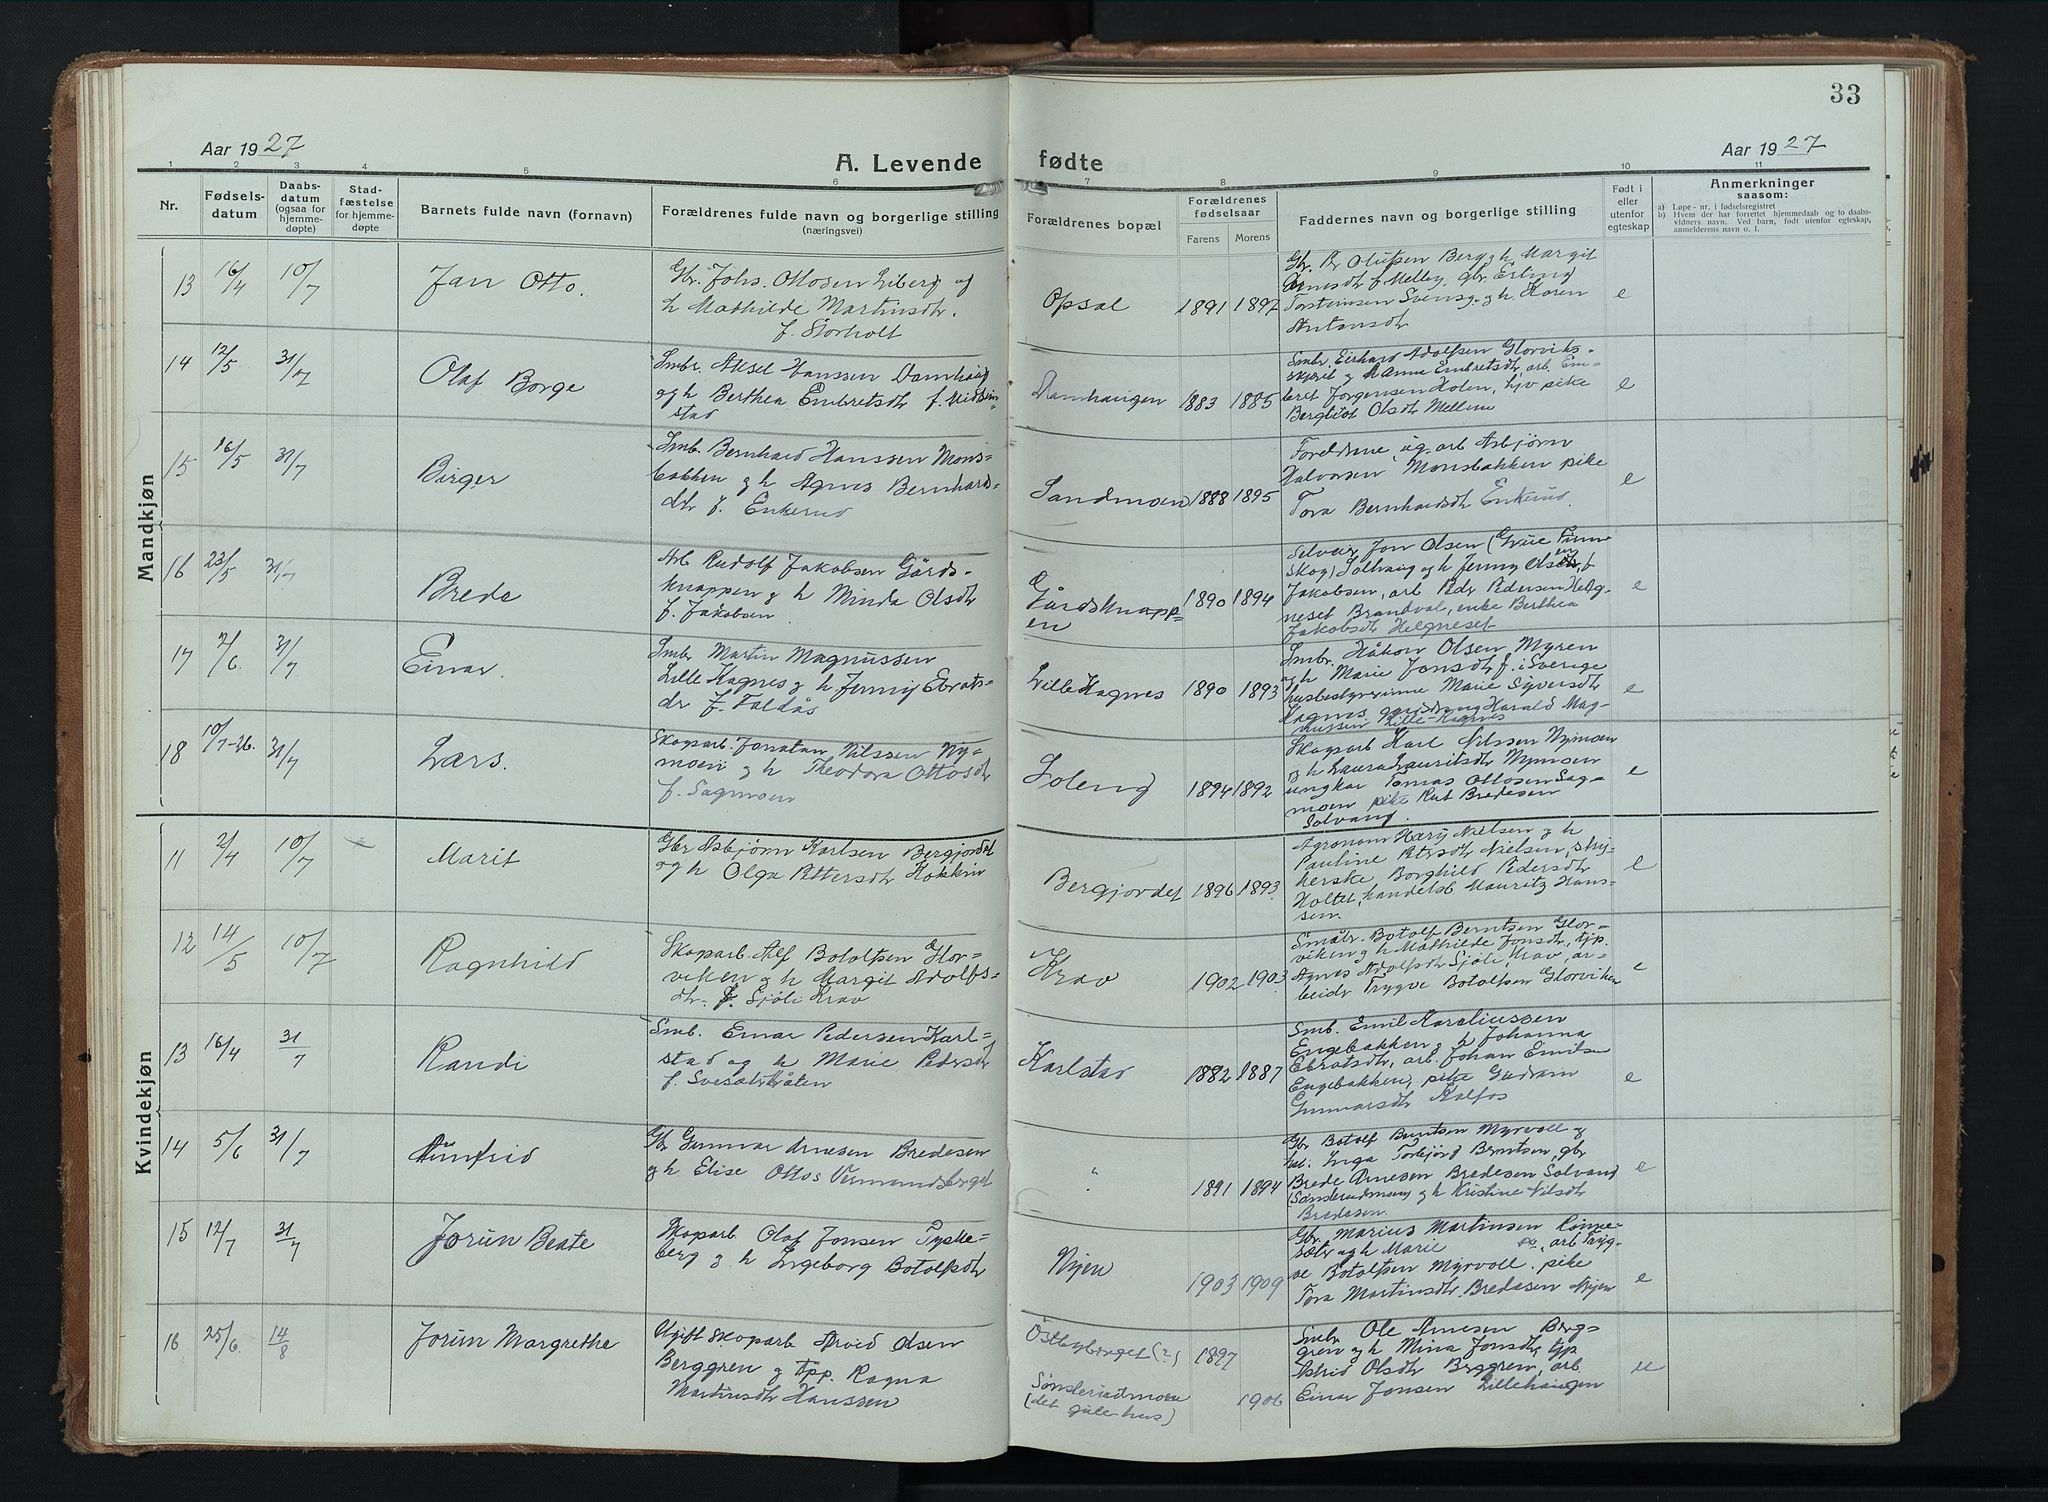 33
Aar 1927
A. Levende fødte
Aar 1927
1 2 3 4 5 6 7 8 9 10 11
Nr.
Fødsels-
datum
Daabs-
datum
(ogsaa for
hjemme-
døpte)
Stad-
fæstelse
for hjemme-
døpte
Barnets fulde navn (fornavn)
Forældrenes fulde navn og borgerlige stilling
(næringsvei)
Forældrenes bopæl
Forældrenes
fødselsaar
Farens
Morens
Faddernes navn og borgerlige stilling
Født i
eller
utenfor
egteskap
Anmerkninger
saasom:
a) Løpe-nr. i fødselsregistret
b) Hvem der har forrettet hjemmedaab og to daabs-
vidners navn. Ved barn, født utenfor egteskap,
anmelderens navn o. l.
Mandkjøn
13 16/4 10/7 Jan Otto.
Gbr. Johs. Ottosen Liberg og
h Mathilde Martinsdtr.
f. Storholt
Opsal 1891 1897
Gbr. Pr Olufsen Berg og h Margit
Arnesdt f Melby, gbr Erling
Torsteinsen Svensg. og h Karen
Antonsdtr
e
14 12/5 31/7 Olaf Borge
Smbr. Aksel Hanssen Damhaug
og h Berthea Embretsdtr f. Midtsin-
stad
Damhaugen 1883 1885
Smbr. Eirhard Adolfsen Glorvik-
skjæret og h Anna Embretsdtr, arb. Em-
bret Jørgensen Holen, hjv pike
Bergliot Olsdtr Mellem
e
15 16/5 31/7 Birger
Smb. Bernhard Hanssen Mons-
bakken og h Agnes Bernhards-
dtr f. Enkerud
Sandmoen 1888 1895
Foreldrene, ug. arb Asbjørn
Halvorsen Monsbakken pike
Tora Bernhardsdtr Enkerud.
e
16 23/5 31/7 Brede
Arb Rudolf Jakobsen Gårds-
knappen og h Minda Olsdtr
f. Jakobsen
Gårdsknapp-
en 1890 1894
Selveier Jon Olsen (Grue Finn-
skog) Solhaug og h Jenny Olsen, f
Jakobsen, arb Pedr Pedersen Helg-
neset Brandval, enke Berthea
Jakobsdtr Helgneset
e
17 2/6 31/7 Einar.
Smbr Martin Magnussen
Lille Kagnes og h Jenny Ebrets-
dr f. Faldås
Lille Kagnes 1890 1893
Smbr. Håkon Olsen Myren
og h Marie Jonsdtr f. i Sverige
husbestyrerinne Marie Syversdtr
Kagnes, gårddreng Harald Mag-
nussen Lille-Kagnes
e
18 10/7-26. 31/7 Lars.
Skogarb. Jonatan Nilssen Ny-
moen og h Theodora Ottosdtr
f. Sagmoen
Soleng 1894 1892
Skogarb Karl Nilssen Nymoen
og h Laura Lauritsdtr Nymoen
ungkar Tomas Ottosen Sag-
moen pike Rut Bredesen
Solvang.
e
Kvindekjøn
11 2/4 10/7 Marit
Gbr Asbjørn Karlsen Bergjordet
og h Olga Pettersdtr Kokkin
Bergjordet 1896 1893
Agronom Harry Nielsen og h
Pauline Petersdtr Nielsen, sty-
herske Borghild Pedersdtr
Holtet, handelsb Mauritz Hans-
sen.
e
12 14/5 10/7 Ragnhild
Skogarb. Alf Botolfsen Glor-
viken og h Margit Adolfs-
dtr. f. Sjøli Krav
Krav 1902 1903
Småbr. Botolf Berntsen Glor-
viken og h Mathilde Jonsdtr, tjp.
Agnes Adolfsdtr Sjøli, Krav, ar-
beidr Trygve Botolfsen Glorviken
e
13 16/4 31/7 Randi
Smb. Einar Pedersen Karl-
stad og h Marie Pedersdtr
f. Svesæterbråten
Karlstad 1882 1887
Smb. Emil Kareliussen
Engebakken og h Johanna
Ebratsdtr, arb. Johan Emilsen
Engebakken, pike Gudrun
Gunnarsdtr Kalfos
e
14 5/6 31/7 Arnfrid
Gbr Gunnar Arnesen Bredesen
og h Elise Ottos Vermundsberget
" 1891 1894
Gbr Botolf Berntsen Myrvoll og
Inga Torbjørg Berntsen, gbr
Brede Arnesen Bredesen Solvang
(Sønderudmoen) og h Kristine Nilsdtr
Bredesen.
e
15 12/7 31/7 Jorun Beate
Skogarb Olaf Jonsen Tyske-
berg og h Ingeborg Botolfsdtr
Myren 1903 1909
Gbr. Marius Martinsen Rønne-
sætr og h Marie arb Tryg-
ve Botolfsen Myrvoll. pike
Tora Martinsdtr. Bredesen Myren
e
16 25/6. 14/8 Jorun Margrethe
Ugift skogarb Arvid Olsen
Berggren og tpp. Ragna
Martinsdtr Hanssen
Østbyberget (?) 1897
Sønderudmoen
(det gule hus) 1906
Smbr Ole Arnesen Berg-
gren og h Mina Jonsdtr, tjp
Astrid Olsdtr Berggren, arb
Einar Jonsen Lillehaugen
u